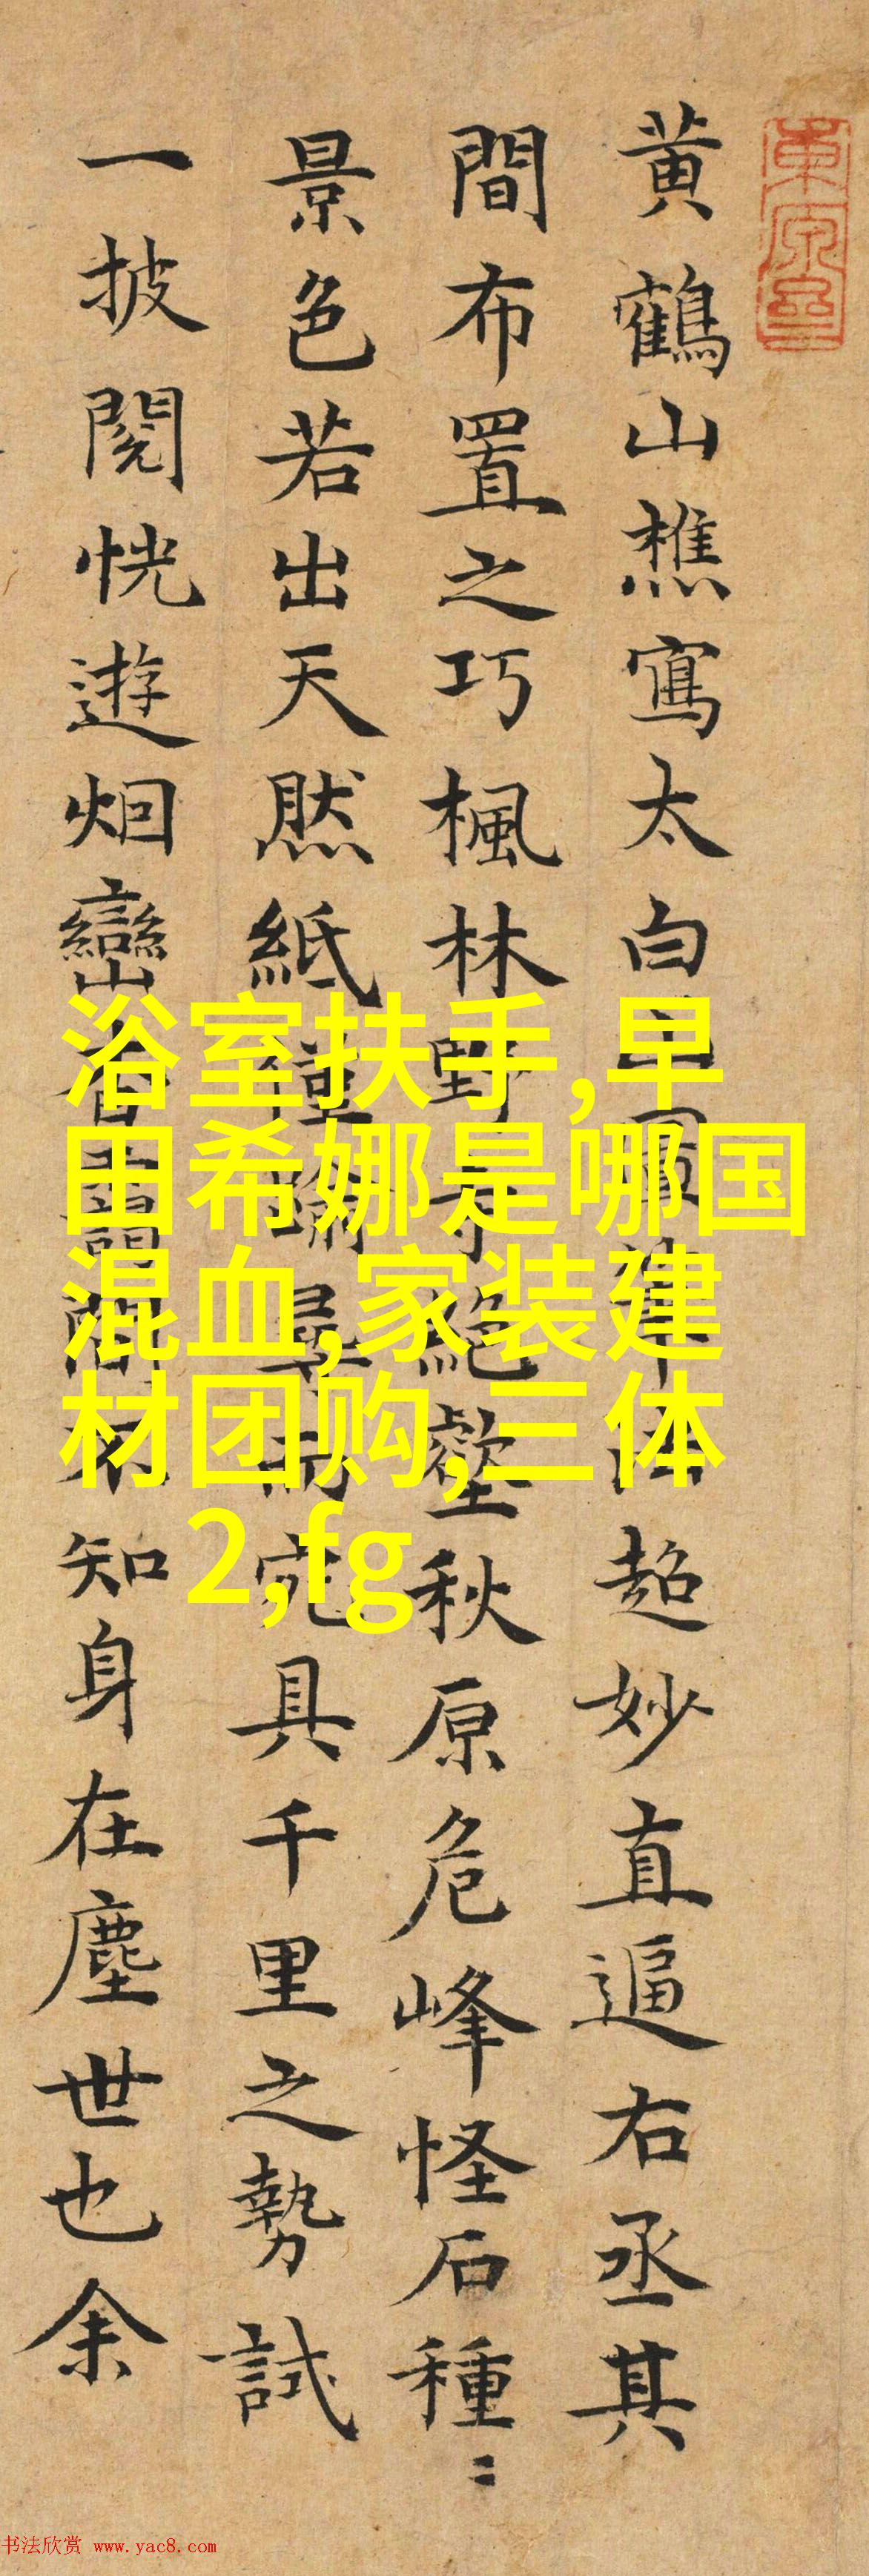 黄鶴山樵寫太白山圖筆法超妙直逼右丞其
間布置之巧楓林野寺絕壑秋原危峰怪石種〻
景色若出天然紙僅踰尋宛具千里之勢試
一披閱恍遊烟巒杳靄間不知身在塵世也余
浴室扶手,早
田希娜是哪国
混血,家装建
材团购,三体
2,fg
书法欣赏 www.yac8.com